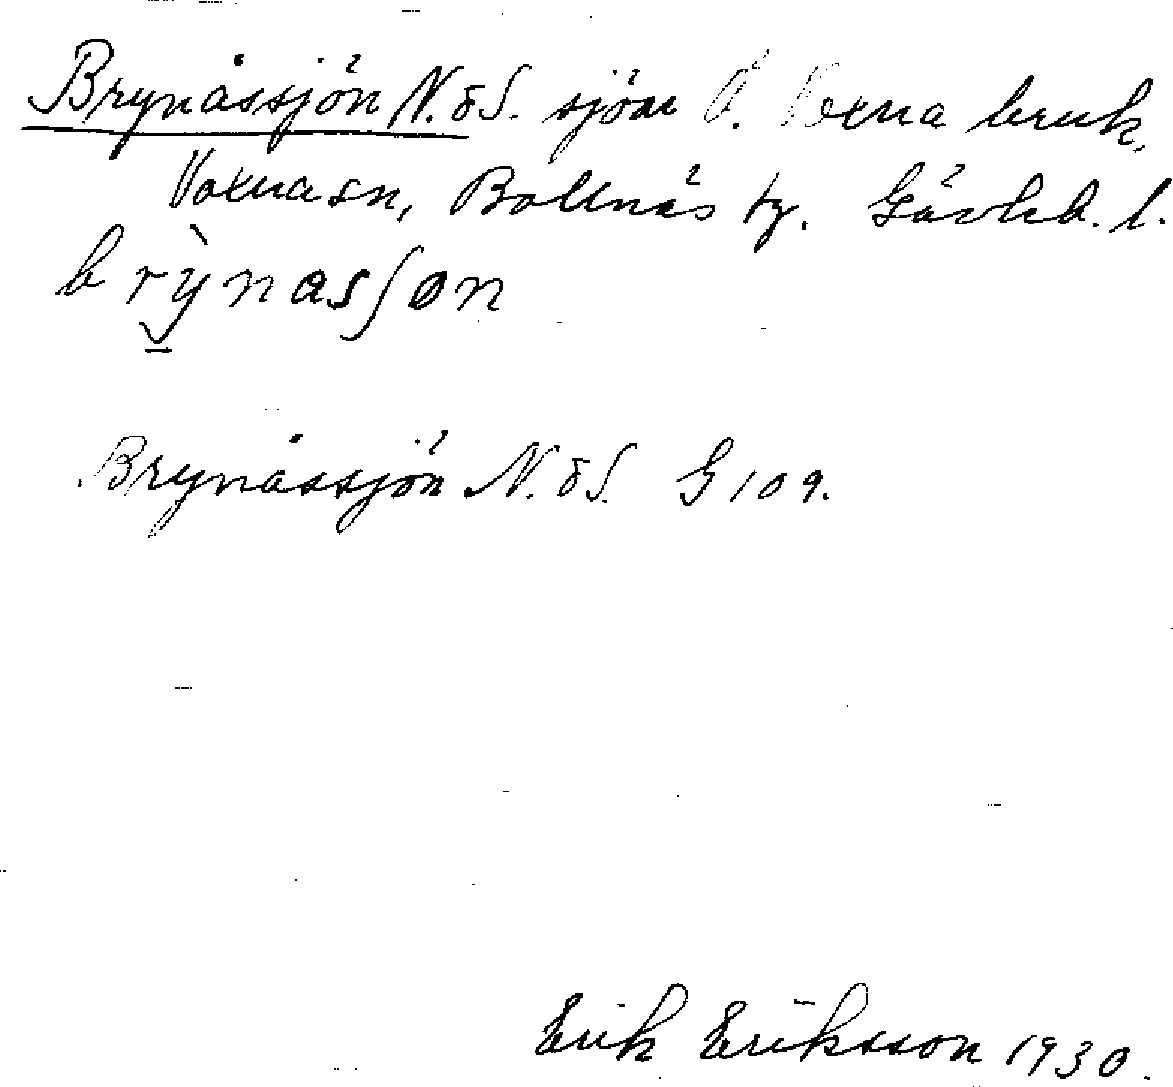 Brynåssjön N. o S. sjöar Ö. Voxna bruk,
Voxnasn, Bollnäs tg. Gävleb. l.
brỳnasʃøn
Brynåssjön N. o S. G 109.
Erik Eriksson 1930.